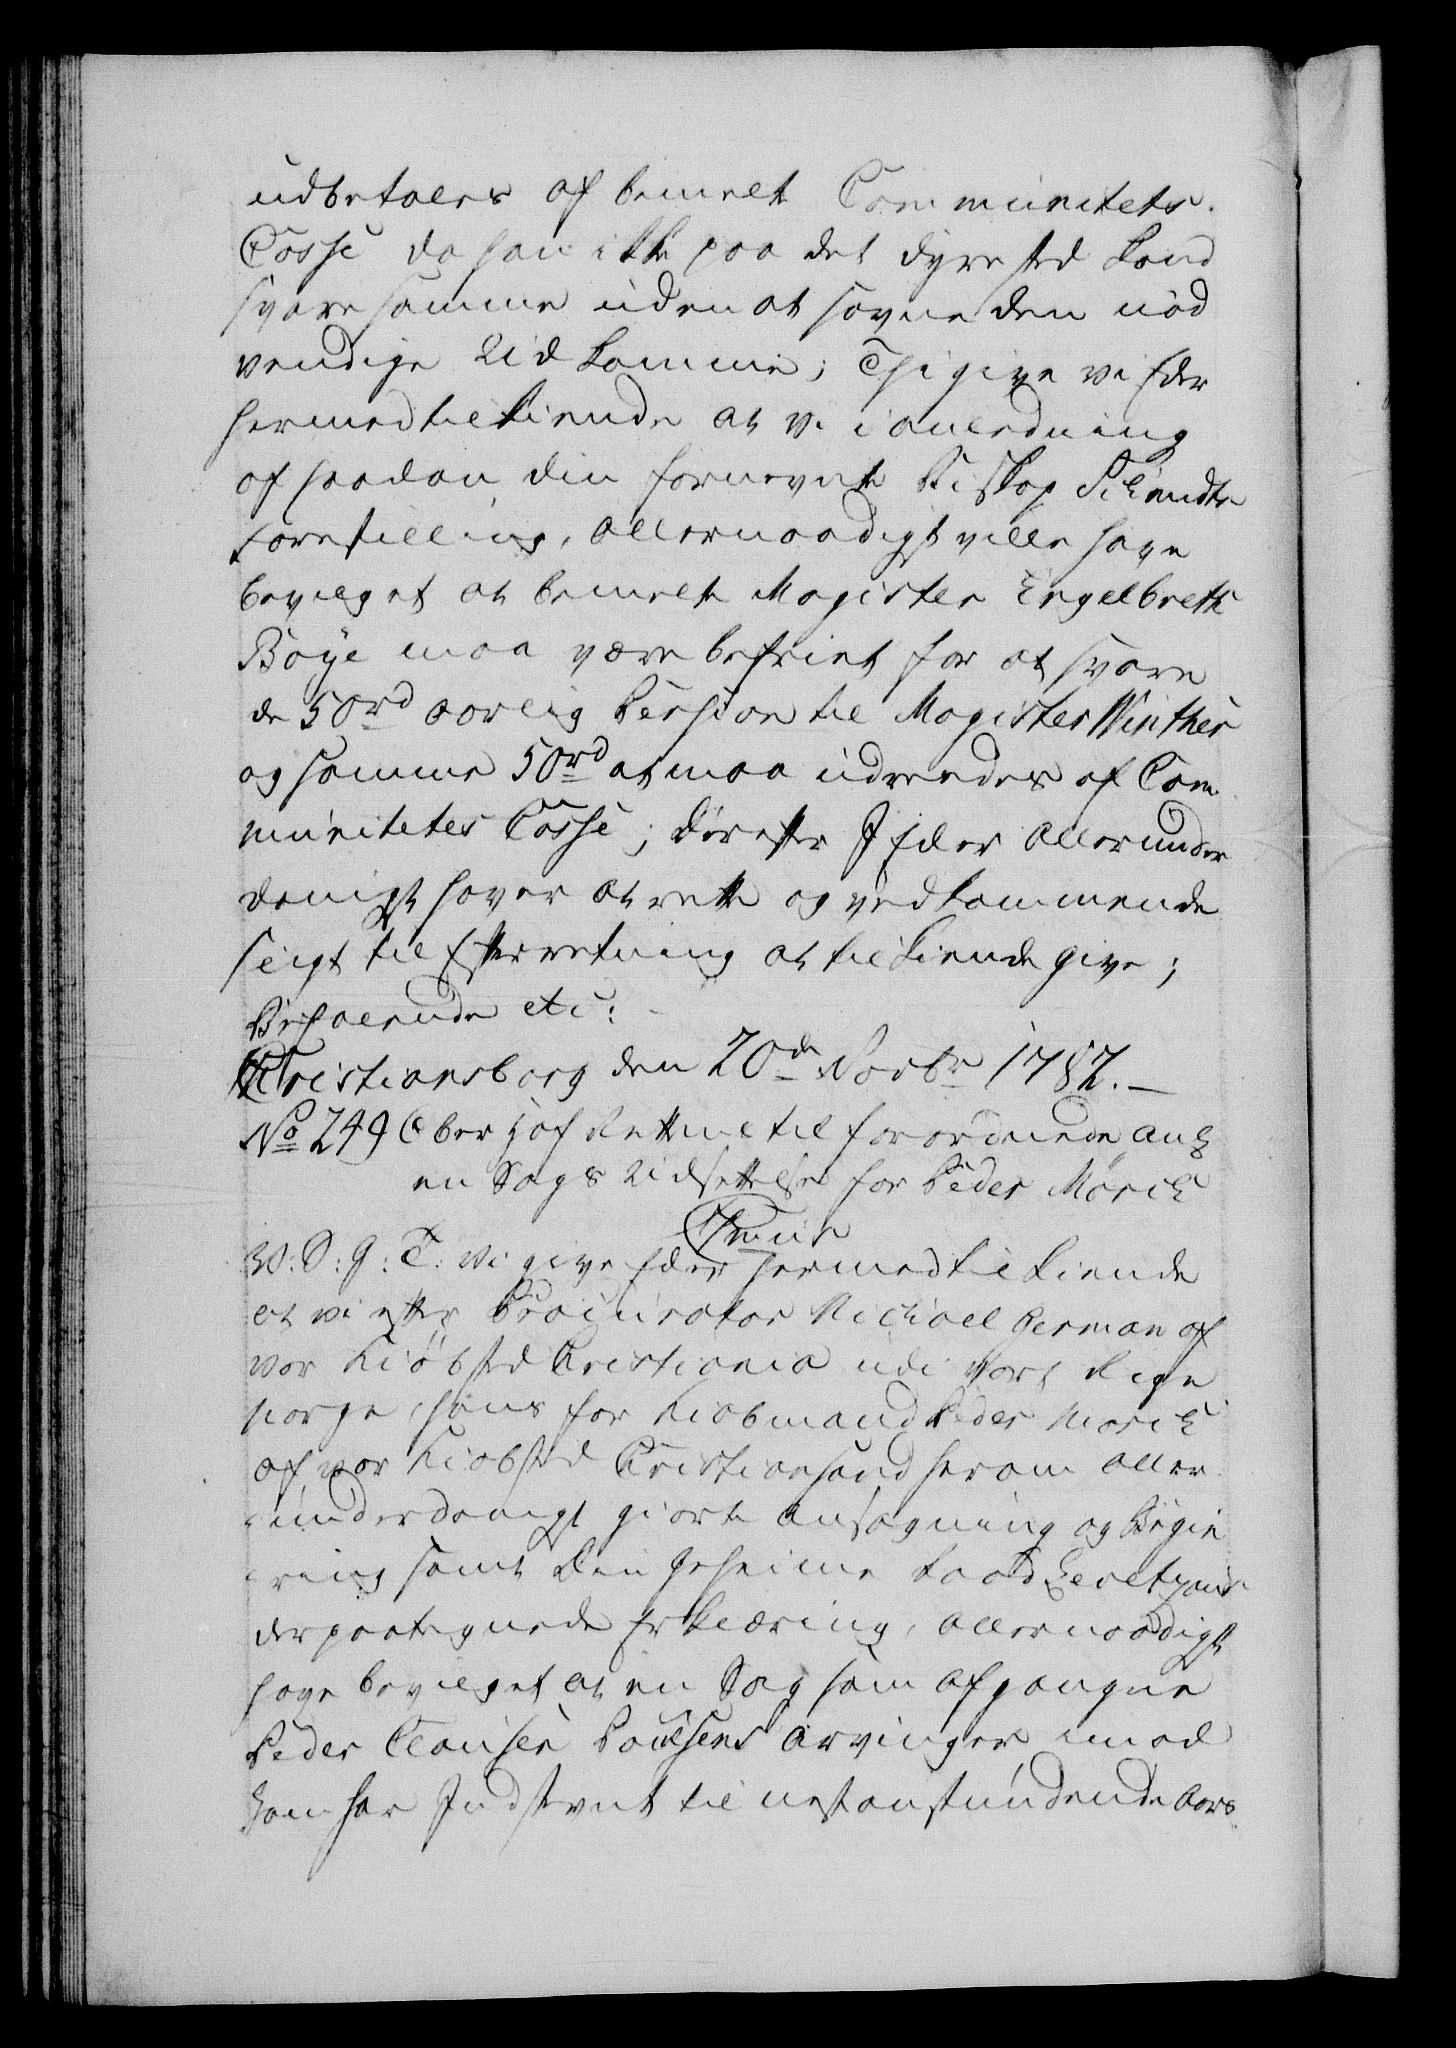 udbetales af bemelte Communitets
Casse da han ikke paa det dyre sted kand
svare samme uden at savne den nød
vendige Udkomme; Thi give vi Eder
hermed tilkiende at vi i anledning
af saadan din fornevnte Biskop Schmidts
forestilling, allernaadigst ville have
bevilget at bemelte Magister Engelbreth
Boye maa være befriet for at svare
de 50 rd aarlig Pension til Magister Winther
og samme 50 rd at maa udreedes af Com
munitetes Casse; derefter I Eder allerunder
danigst haver at rette og vedkommende
sligt til Efterretning at tilkiende give;
Befalende etc:
Christiansborg den 20de Novbr 1782.
No 249 Ober Hof Rettne til forordnede ang
en Sags Udsettelse for Peder Mørch
W. S: G: T. Vi give Eder hermed tilkiende
at vi efter Procurator Michael Herman af
vor Kiøbsted Christiania udi vort Rige
Norge, hans for Kiøbmand Peder Mørch
af vor Kiøbsted Christiansand herom aller
underdanigst giorte ansøgning og Begie
ring samt den Geheime Raad Levetzous
der paategnede Erklæring, allernaadigst
have bevilget at en Sag som afgangne
Peder Clausen Poulsens Arvinger imod
ham har Indstevnt til nestanstundende Aars